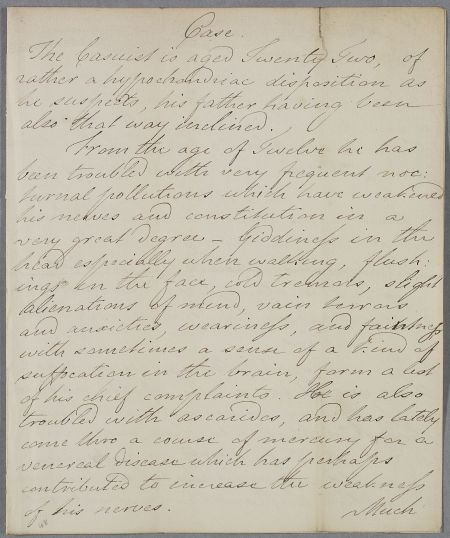 Case.
The Casuist is aged Twenty Two, of
rather a hypochondriac disposition as
he suspects, his father having been
also that way inclined.
From the age of Twelve he has
been troubled with very frequent noc:
turnal pollutions which have weakened
his nerves and constitution in a
very great degree – Giddiness in the
head especially when walking, flush:
ings in the face, cold tremors, slight
alienations of mind, vain terrors
and anxieties, weariness, and faintness
with sometimes a sense of a kind of
suffocation in the brain, form a list
of his chief complaints. He is also
troubled with ascarides, and has lately
come thro a course of mercury for a
venereal disease which has perhaps
contributed to increase the weakness
of his nerves.
Much